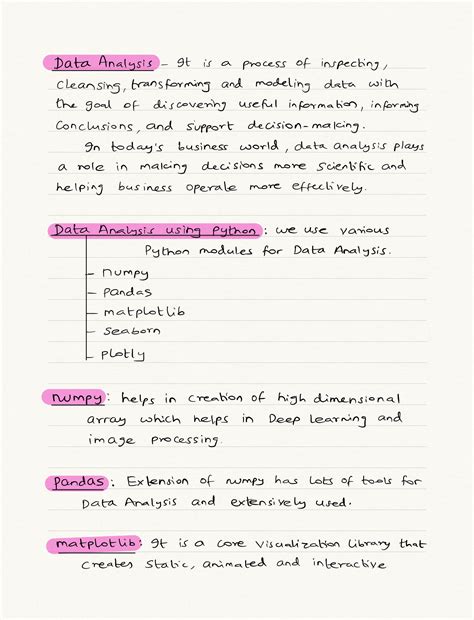 Data Analysis - It is a process of inspecting,
cleansing, transforming and modeling data with
the goal of discovering useful information, informing
conclusions, and support decision-making.
In today's business world, data analysis plays
a role in making decisions more scientific and
helping business operate more effectively.
Data Analysis using Python: we use various
Python modules for Data Analysis.
- numpy
- Pandas
- matplotlib
- seaborn
- plotly
numpy: helps in creation of high dimensional
array which helps in Deep learning and
image processing.
Pandas: Extension of numpy has lots of tools for
Data Analysis and extensively used.
matplotlib: It is a core visualization library that
creates static, animated and interactive